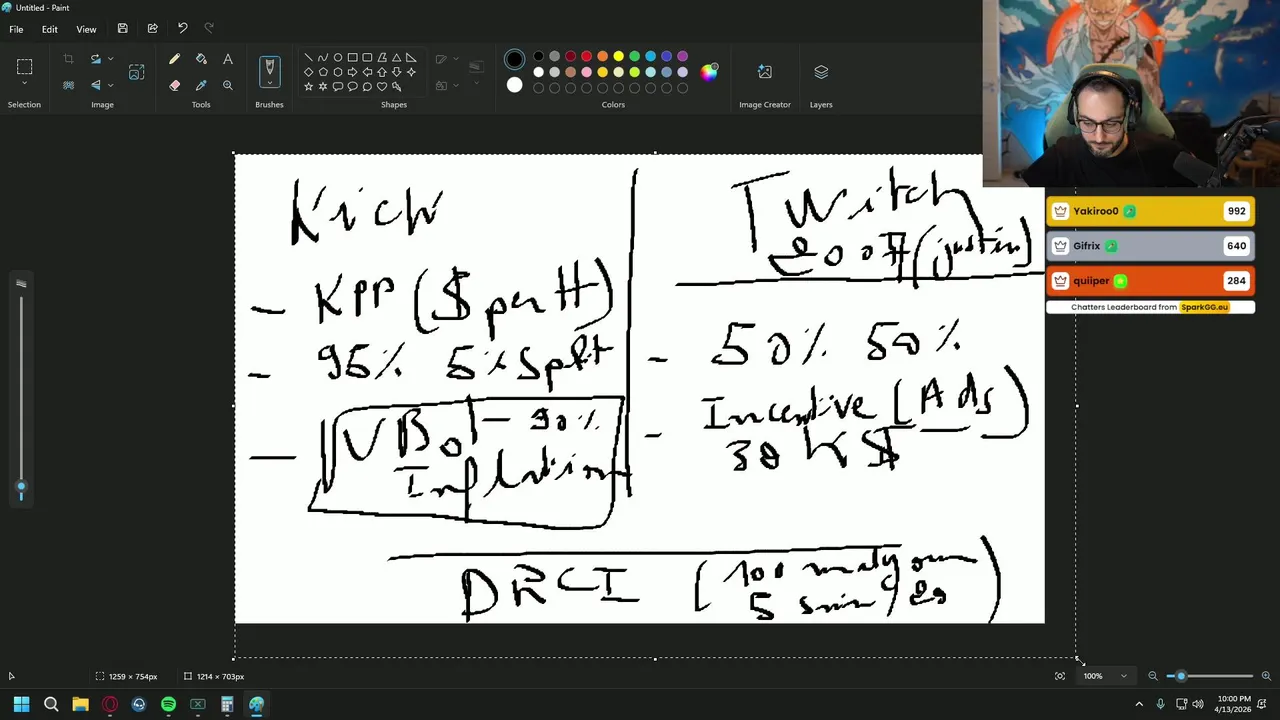 Untitled - Paint
File Edit View
Selection
Image
Tools
Brushes
Shapes
Colors
Image Creator
Layers
Kick
- KPP ($ per H)
- 95% 5% Split
- VBo - 90%
Inflation
Twitch
200H (justin)
- 50% 50%
- Incentive (Ads)
30 K $
DRCI (100
5
Yakiroo0 992
Gifrix 640
quiiper 284
Chatters Leaderboard from SparkGG.eu
1259 × 754px
1214 × 703px
100%
10:00 PM
4/13/2026